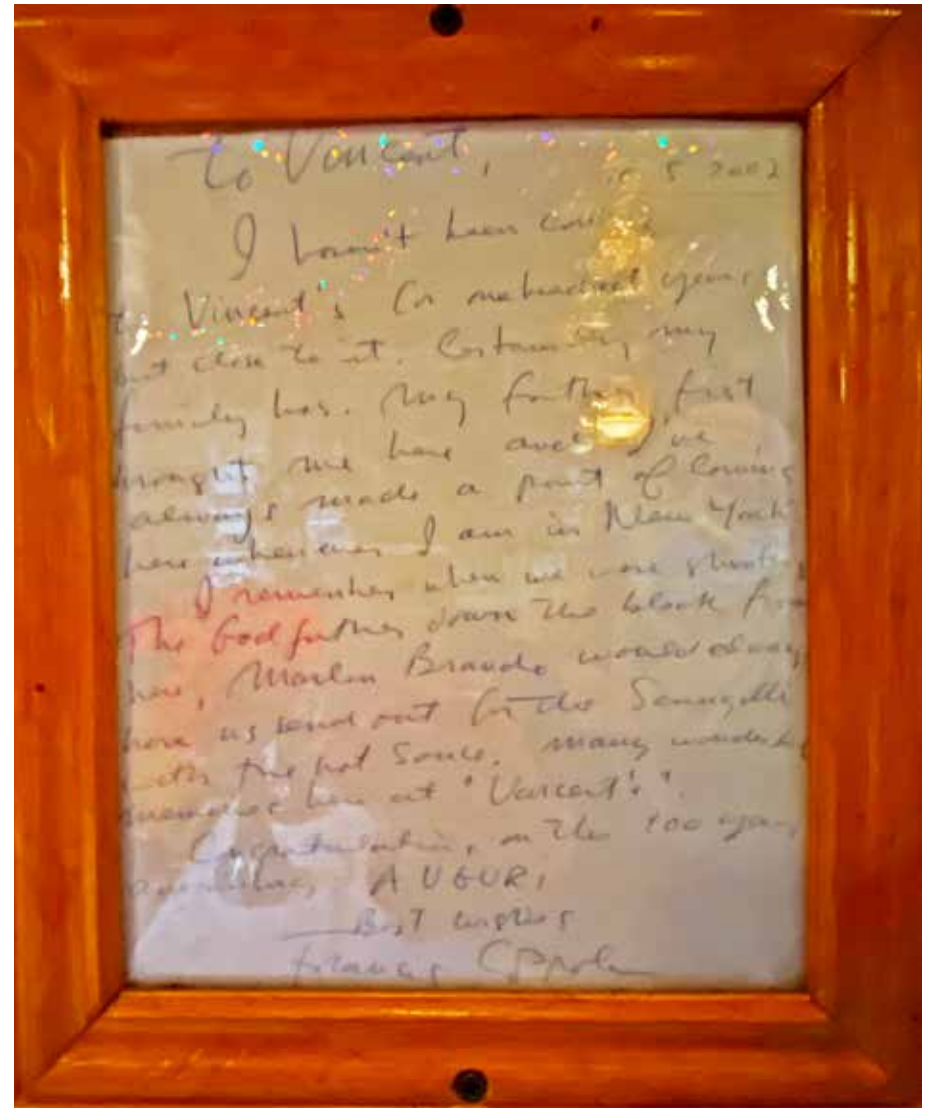 To Vincent,
5 2002
I haven't been coming
to Vincent's for one hundred years,
but close to it. Certainly my
family has. My father first
brought me here and I've
always made a point of coming
here whenever I am in New York
I remember when we were shooting
The Godfather down the block from
here, Marlon Brando would always
have us send out for the Scungilli
with the hot Sauce. Many wonderful
memories here at "Vincent's".
Congratulations, on the 100 years
AUGURI
Best wishes
Francis Coppola